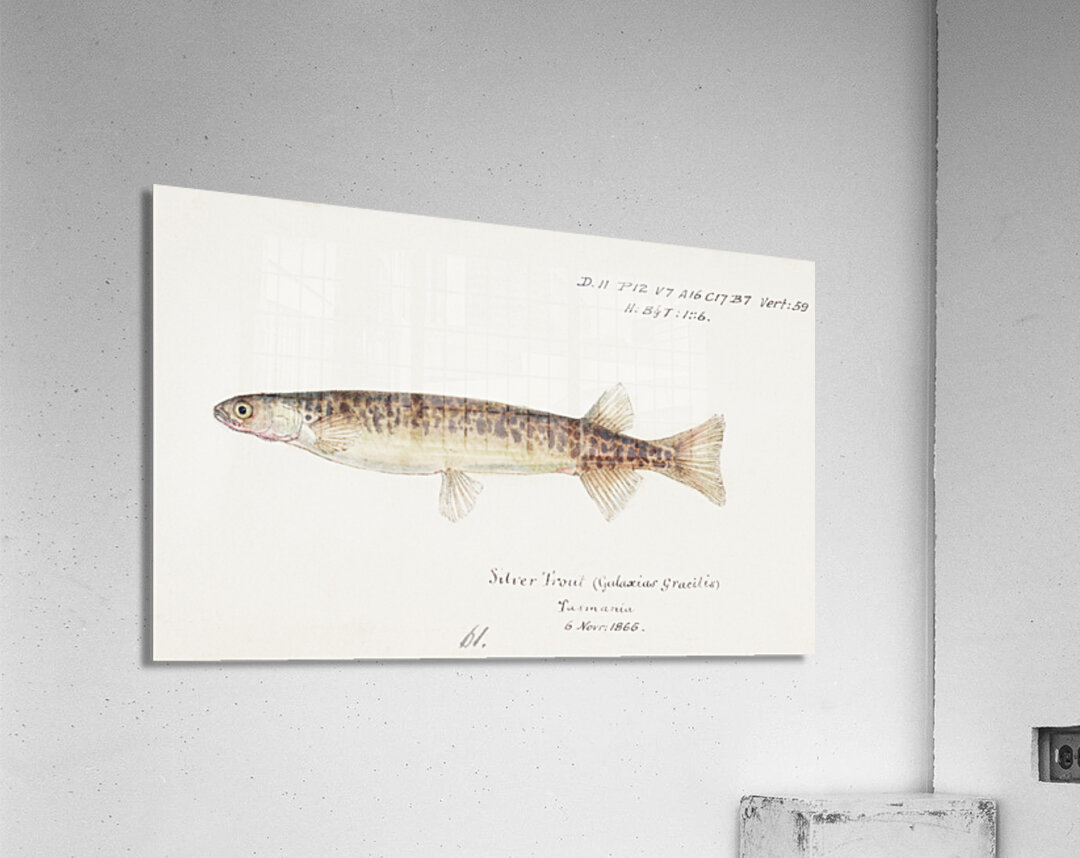 D. 11 P12 V7 A16 C17 B7 Vert: 59
H: B½T: 1::6.
Silver Trout (Galaxias Gracilis)
Tasmania
6 Novr: 1866.
61.